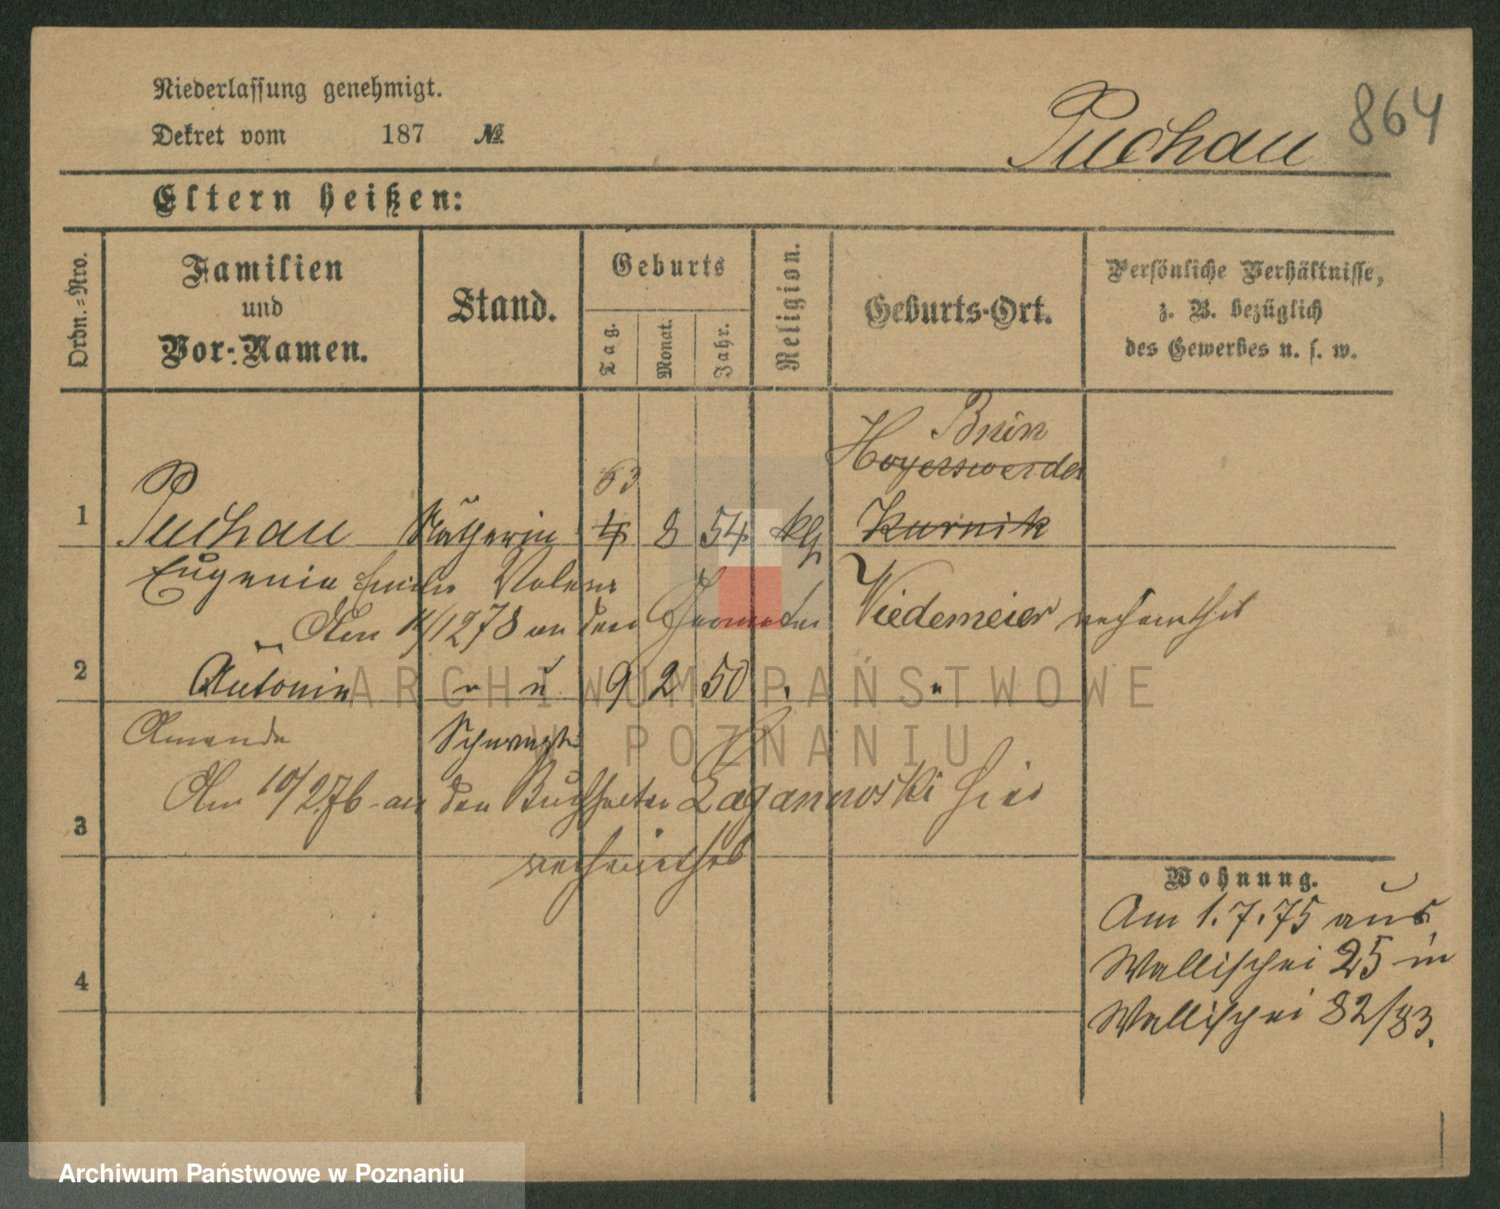 Niederlassung genehmigt.
Dekret vom 187 №
Puchau 864
Eltern heißen:
Ordn.=Nro.
Familien
und
Vor=Namen.
Stand.
Geburts
Tag.
Monat.
Jahr.
Religion.
Geburts-Ort.
Persönliche Verhältnisse,
z. B. bezüglich
des Gewerbes u. s. w.
Bnin
Hoyerswerda
1 Puchau Näherin 4 8 54 klg Kurnik
Eugenia Emilie
Am 11/12 78 an den Wiedemeier verheirathet
2 Antonie " " 9 2 50 " "
Amanda Schwester
Am 10/2 76 an den Buchhalter Lagannoski hier
3
verheirathet
Wohnung.
Am 1.7.75 aus
Wallischei 25 in
4
Wallischei 82/83.
ARCHIWUM PAŃSTWOWE
W POZNANIU
Archiwum Państwowe w Poznaniu